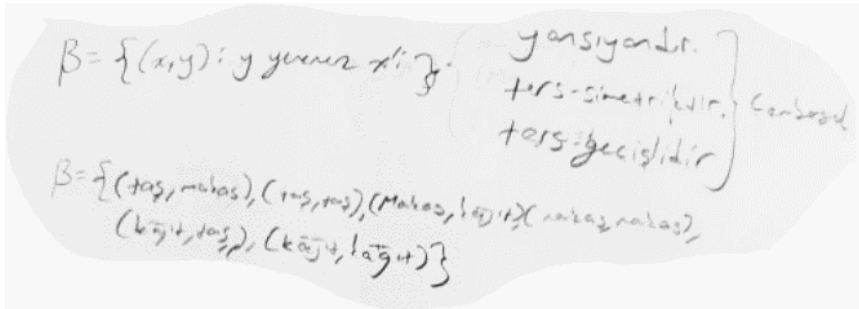 β = {(x,y) : y yenemez x'i}. yansıyandır.
ters-simetriktir.
ters-geçişlidir
β = {(taş, makas), (taş, taş), (Makas, kâğıt), (makas, makas),
(kâğıt, taş), (kâğıt, kâğıt)}